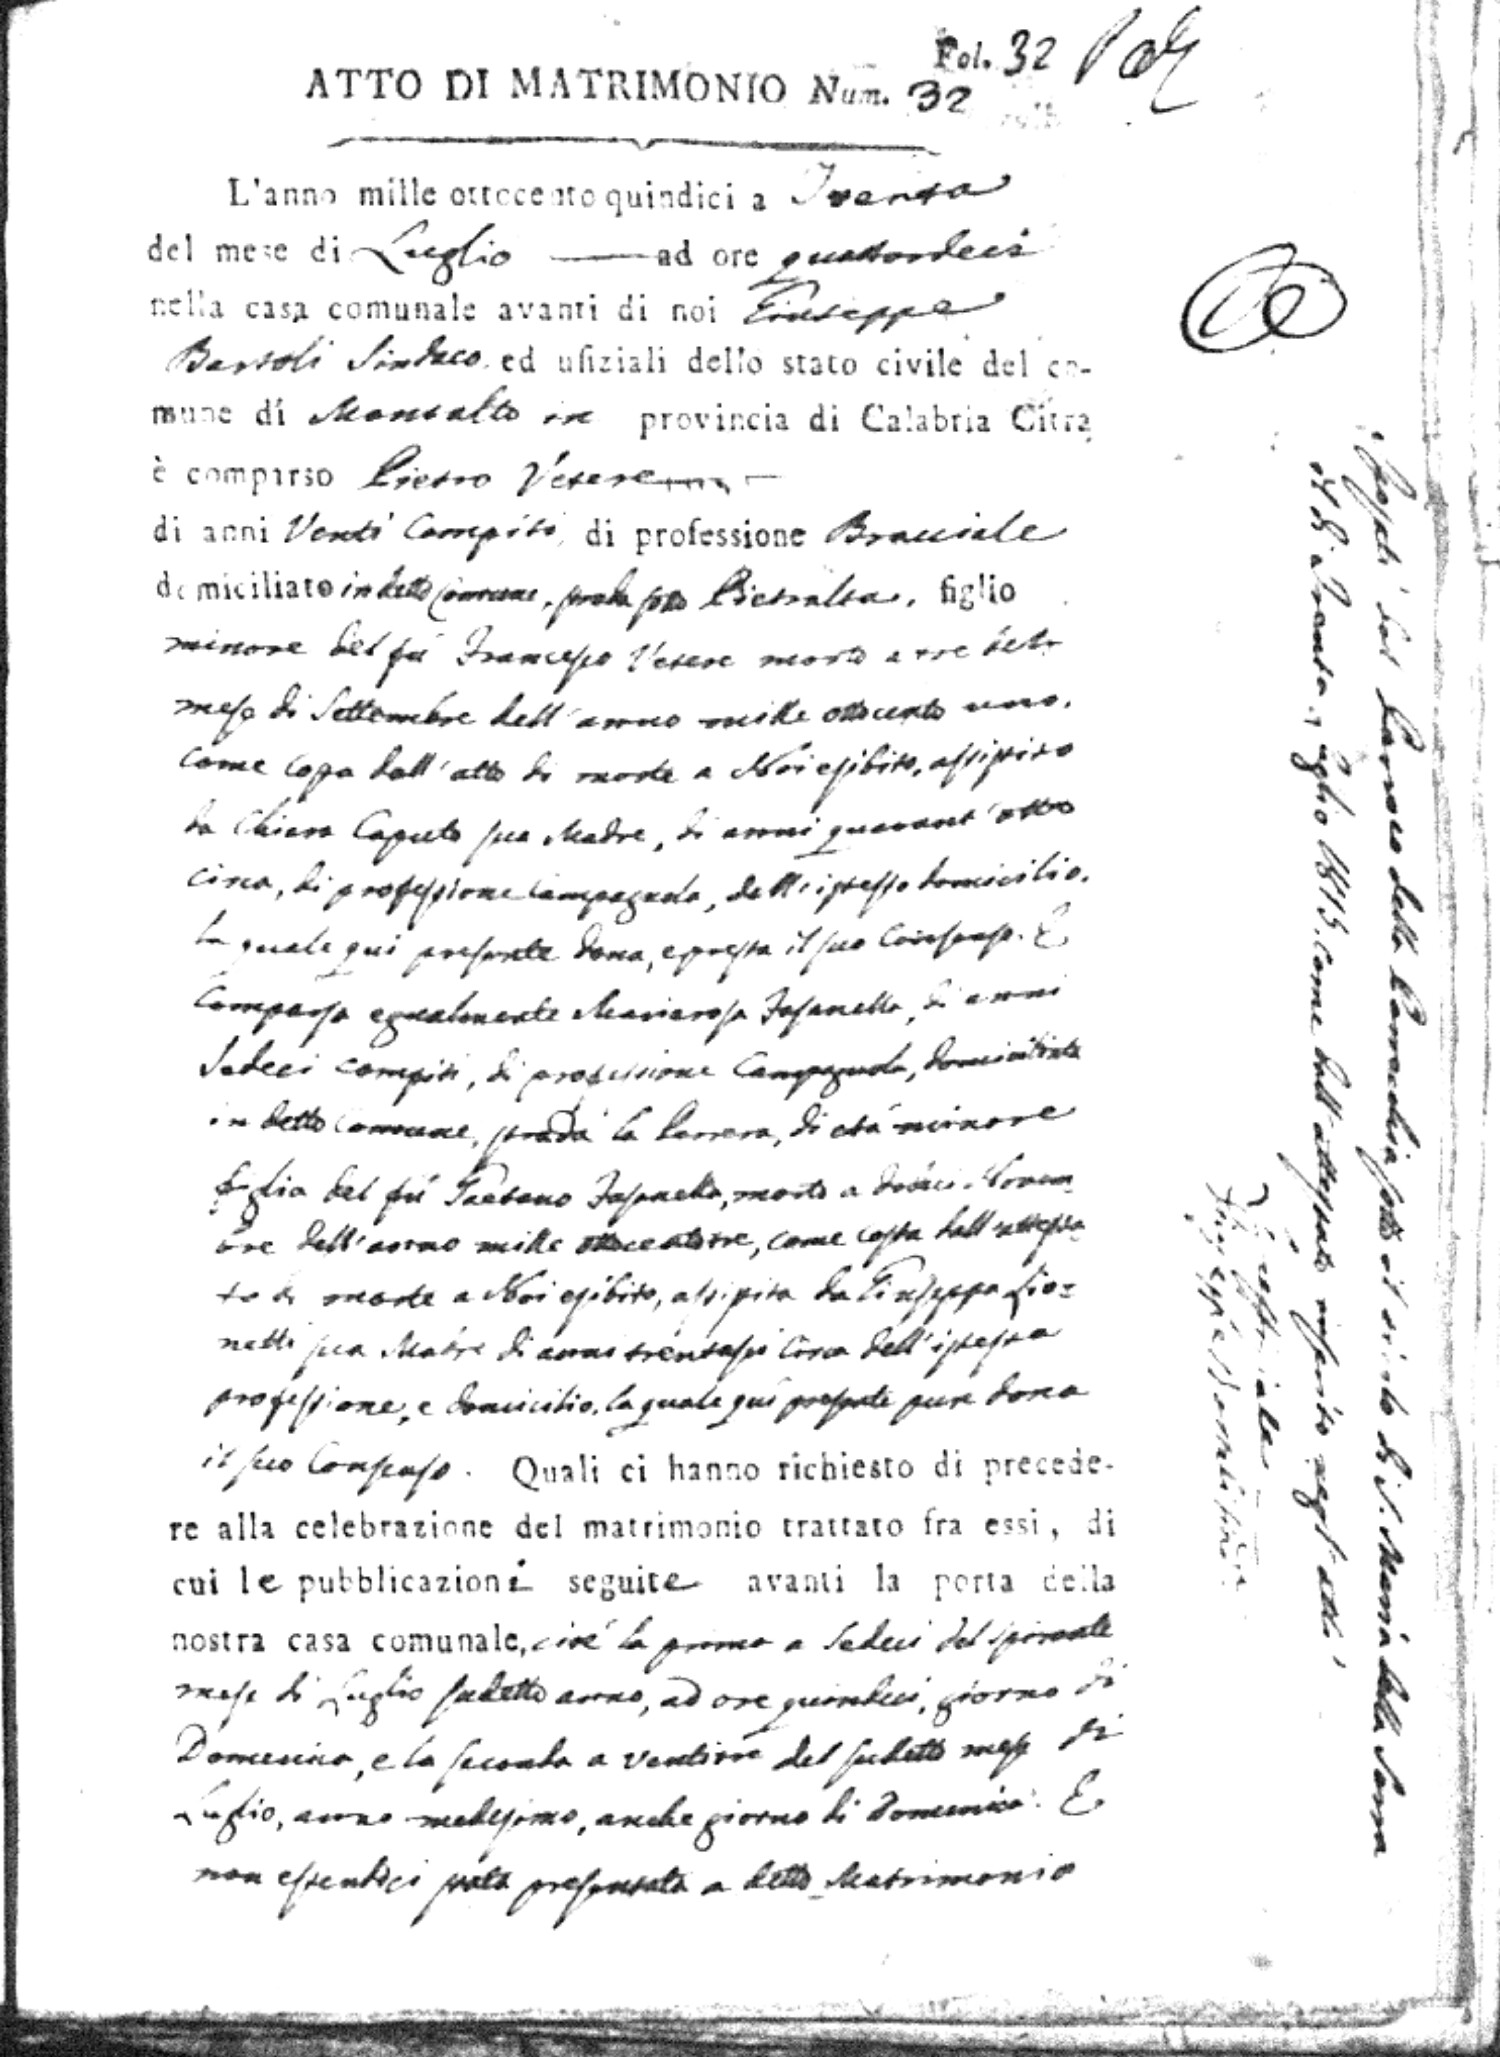 Fol. 32
ATTO DI MATRIMONIO Num. 32
L'anno mille ottocento quindici a Trenta
del mese di Luglio — ad ore quattordeci
nella casa comunale avanti di noi Giuseppe
Bartoli Sindaco ed ufiziali dello stato civile del co-
mune di Montalto in provincia di Calabria Citra
è comparso Pietro Vetere
di anni Venti Compiti, di professione Bracciale
domiciliato in detto Comune, strada sotto Pietralta, figlio
minore del fù Francesco Vetere morto a tre del
mese di Settembre dell'anno mille ottocento uno,
come costa dall'atto di morte a Noi esibito, assistito
da Chiara Caputo sua Madre, di anni quarant'otto
circa, di professione Campagnola, dell'istesso domicilio.
la quale qui presente dona, e presta il suo Consenso. E
Comparsa egualmente Mariarosa Fasanella, di anni
Sedeci compiti, di professione Campagnola, domiciliata
in detto Comune, strada la Carrera, di età minore
figlia del fù Gaetano Fasanella, morto a dodeci Novem
bre dell'anno mille ottocentotre, come costa dall'attesta
to di morte a Noi esibito, assistita da Giuseppa Lio=
netti sua Madre di anni trentasei circa dell'istessa
professione, e domicilio, la quale qui presente pure dona
il suo Consenso. Quali ci hanno richiesto di precede-
re alla celebrazione del matrimonio trattato fra essi, di
cui le pubblicazioni seguite avanti la porta della
nostra casa comunale, cioè la prima a Sedeci del spirante
mese di Luglio sudetto anno, ad ore quindeci, giorno di
Domenica, e la seconda a ventitre del sudetto mese di
Luglio, anno medesimo, anche giorno di Domenica. E
non essendoci stata presentata a detto Matrimonio
Sposati dal Parroco della Parrocchia sotto il titolo di S. Maria della Serra
il dì Trenta Luglio 1815. come dall'attestato inserito negl'atti
L'officiale
Giuseppe Bartoli Sindaco